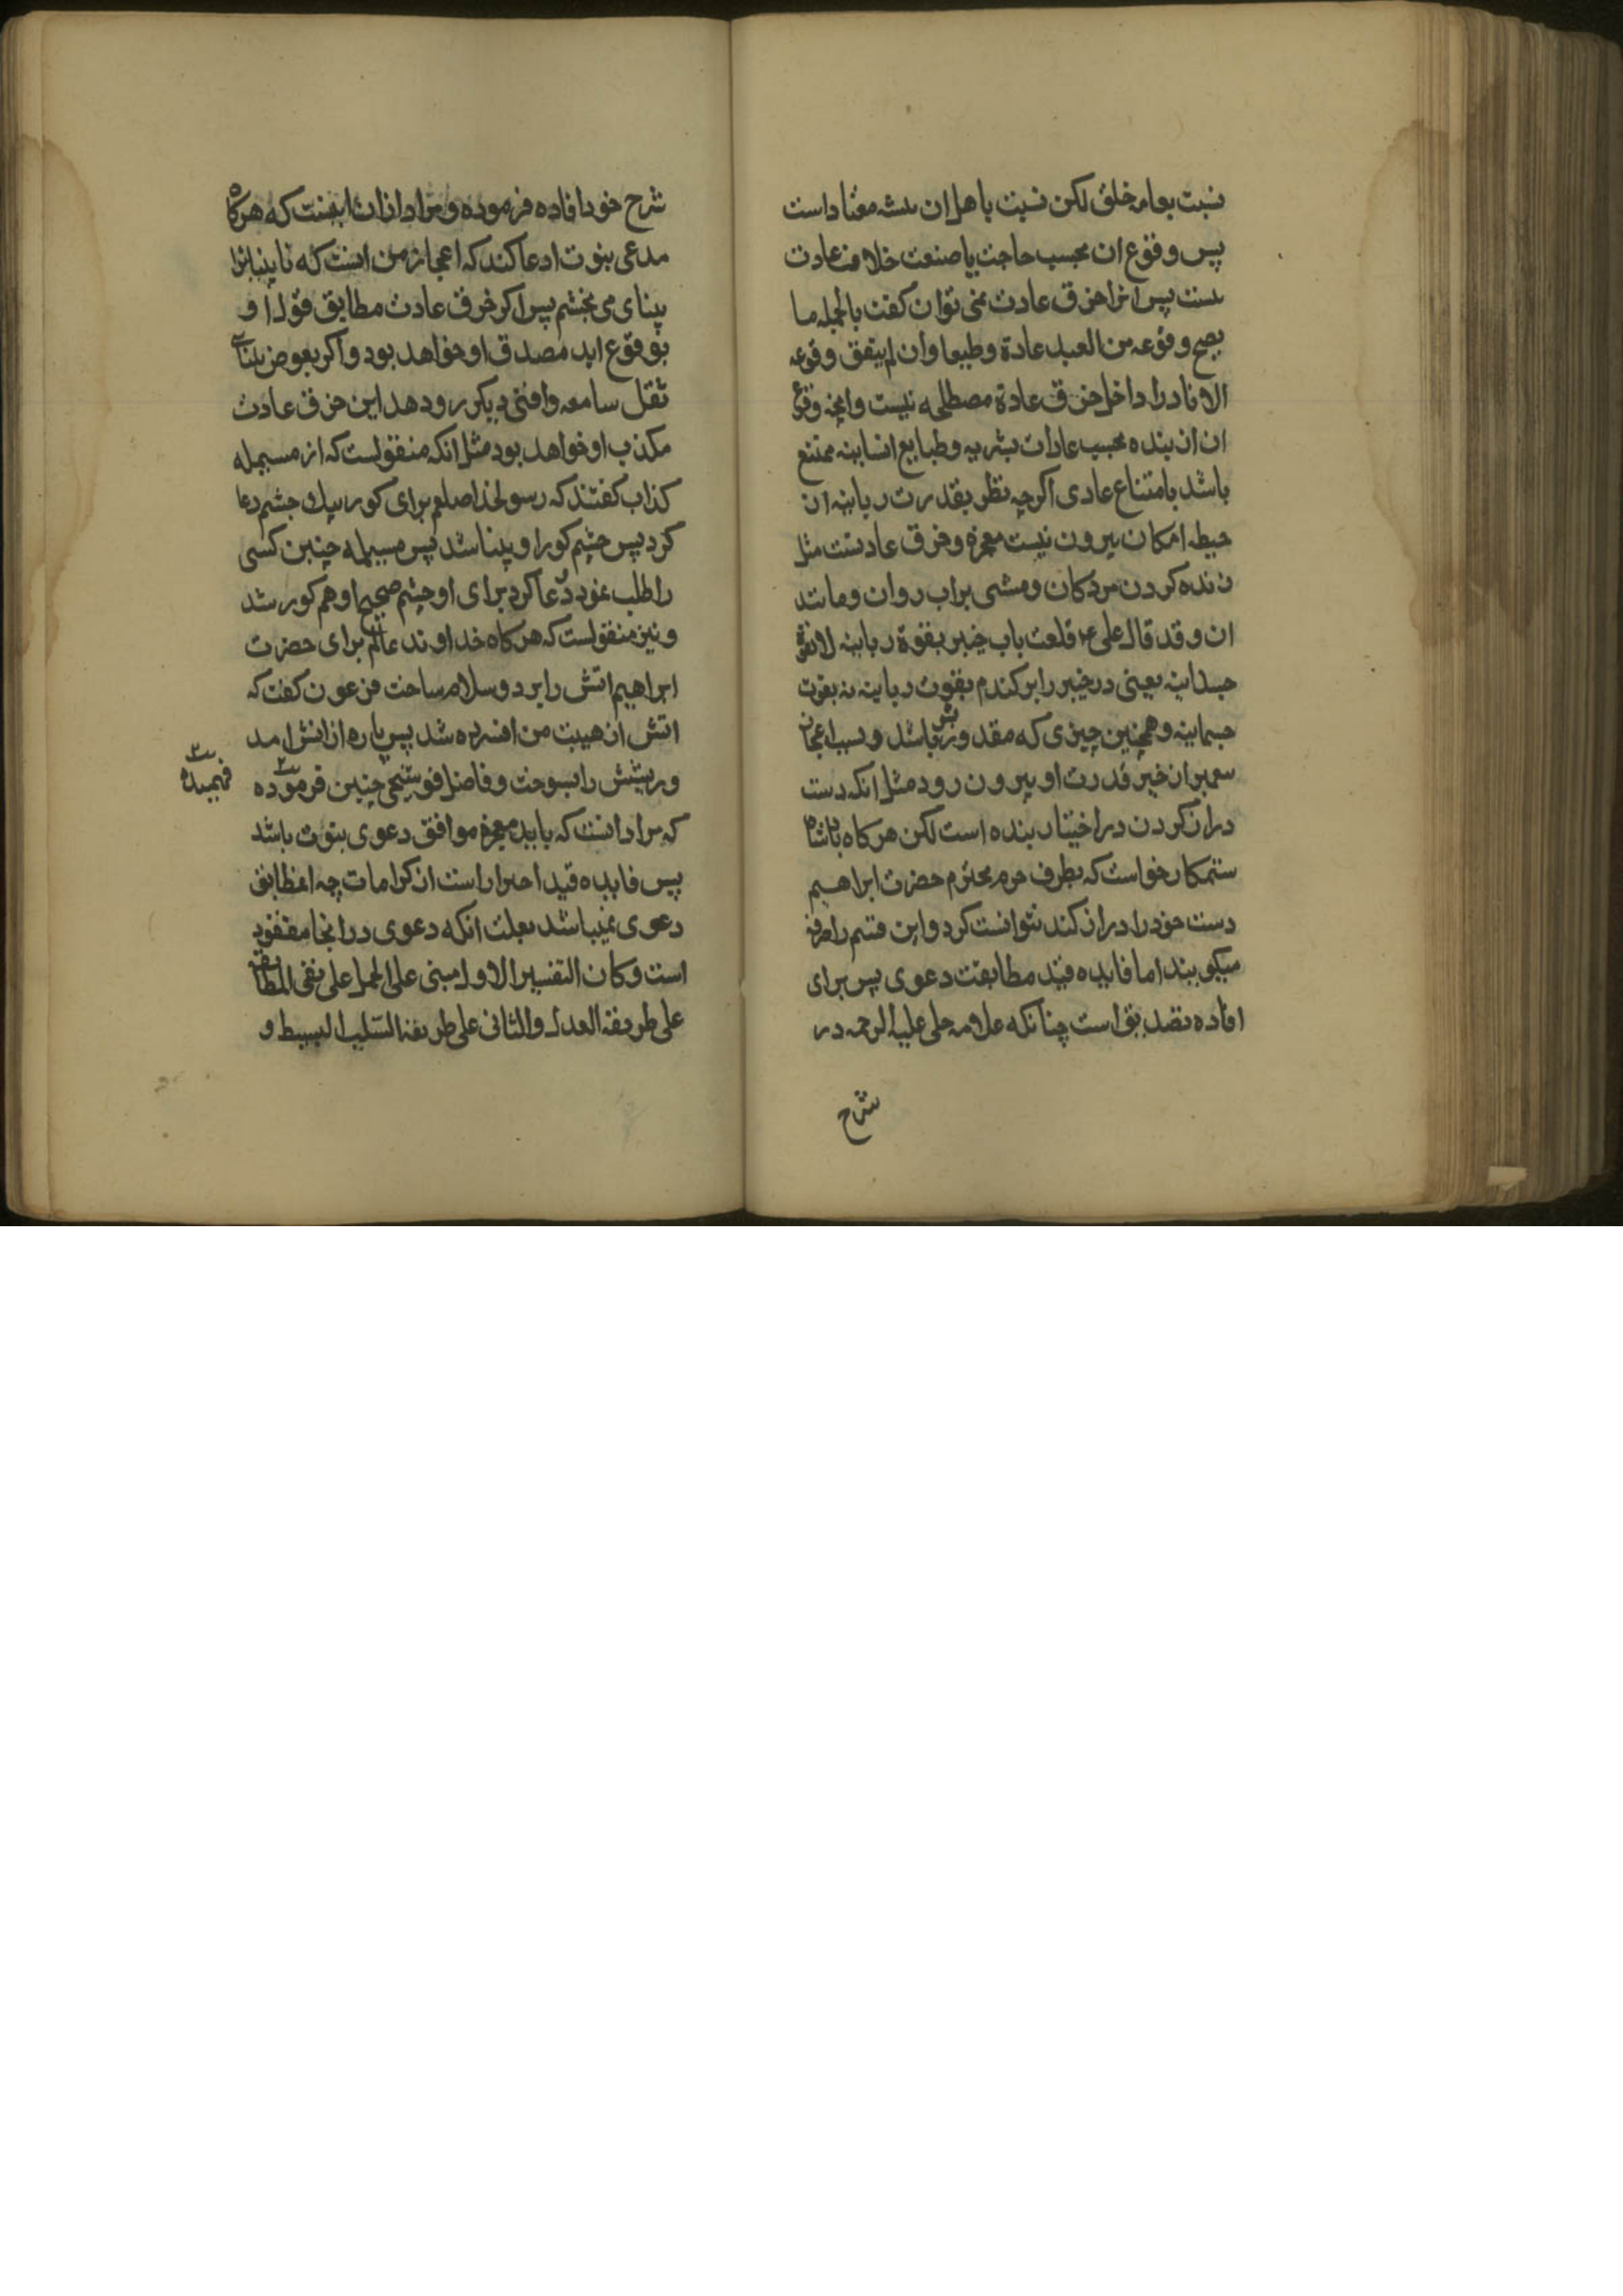 نسبت بعامه خلق لکن نسبت باهل ان معتاد است
پس وقوع ان بحسب حاجت یا صنعت خلاف عادت
نیست پس انرا خرق عادت نمی توان کفت بالجمله ما
یصح وقوعه من العبد عادة وطبعا وان لم یتفق وقوعه
الا نادرا داخل خرق عادة مصطلحه نیست وانچه وقوع
ان از بنده بحسب عادات بشریه وطبایع انسانیه ممتنع
باشد بامتناع عادی اکرچه نظر بقدرت ربانیه از
حیطه امکان بیرون نیست معجزه وخرق عادتست مثل
زنده کردن مردکان ومشی بر اب روان ومانند
ان وقد قال علی ع قلعت باب خیبر بقوة ربانیه لا بقوة
جسدانیه یعنی در خیبر را بر کندم بقوت ربانیه نه بقوت
جسمانیه وهمچنین چیزی که مقدور بشر باشد وبسبب اعجاز
پیمبر از حیز قدرت او بیرون رود مثل انکه دست
دراز کردن در اختیار بنده است لکن هرکاه پادشاه
ستمکار خواست که بطرف حرم محترم حضرت ابراهیم
دست خود را دراز کند نتوانست کرد واین قسم را صرفه
میکویند اما فایده قید مطابقت دعوی پس برای
افاده تصدیق است چنانکه علامه حلی علیه الرحمه در
شرح
شرح خود افاده فرموده ومراد از ان اینست که هرکاه
مدعی نبوت ادعا کند که اعجاز من انست که نابینا را
بینای می بخشم پس اکر خرق عادت مطابق قول او
بوقوع اید مصدق او خواهد بود واکر بعوض بینائی
ثقل سامعه وافتی دیکر رو دهد این خرق عادت
مکذب او خواهد بود مثل انکه منقولست که از مسیلمه
کذاب کفتند که رسولخدا صلعم برای کور بیک چشم دعا
کرد پس چشم کور او بینا شد پس مسیلمه چنین کسی
را طلب نمود ودعا کرد برای او چشم صحیح او هم کور شد
ونیز منقولست که هرکاه خداوند عالم برای حضرت
ابراهیم اتش را برد وسلام ساخت فرعون کفت که
اتش از هیبت من افسرده شد پس پاره از اتش امد
وریشش را بسوخت وفاضل قوشجی چنین فرموده
فهمیده
که مراد انست که باید معجزه موافق دعوی نبوت باشد
پس فایده قید احتراز است از کرامات چه انمطابق
دعوی نمیباشد بعلت انکه دعوی در انجا مفقود
است وکان التفسیر الاول مبنی علی الحمل علی نفی المطابقه
علی طریقة العدل والثانی علی طریقة السلب البسیط و